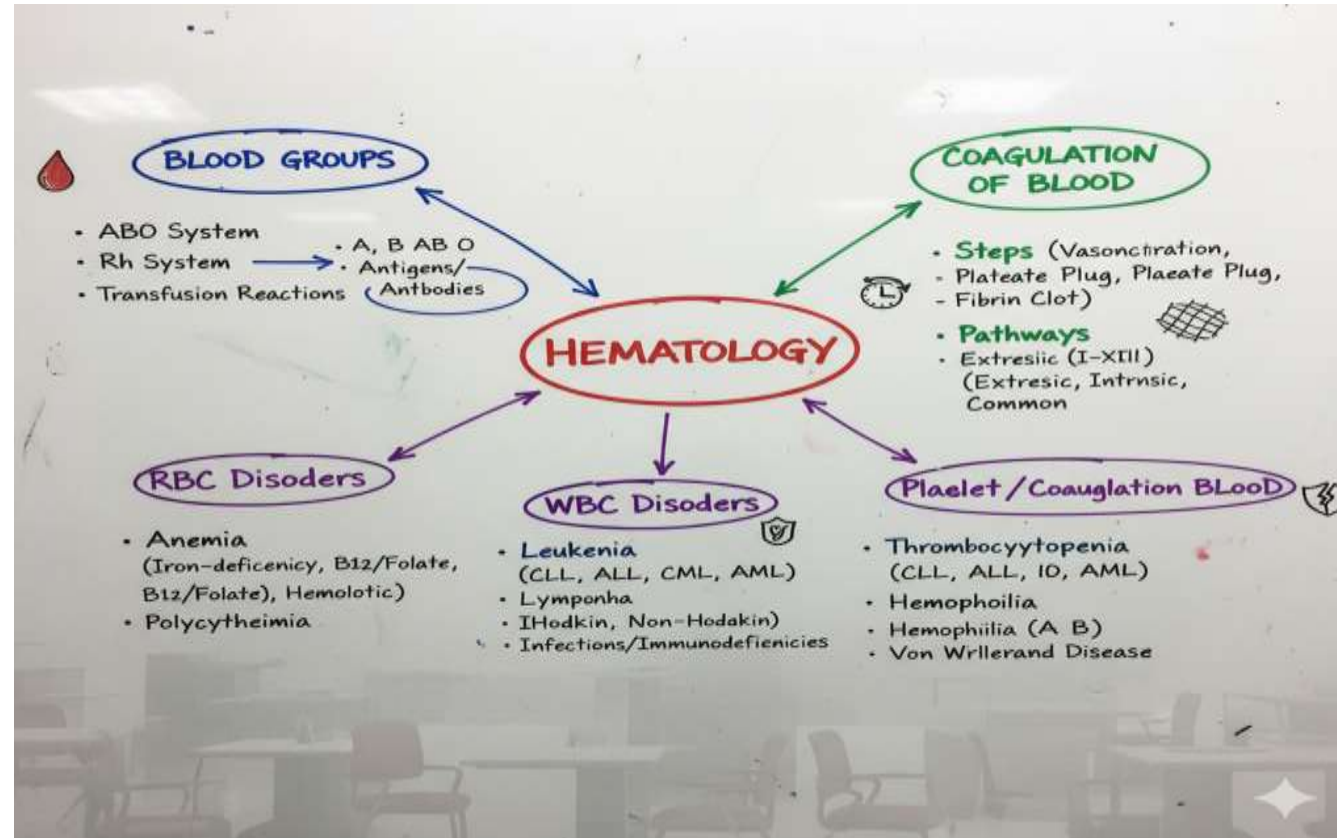 BLOOD GROUPS
• ABO System
• Rh System
• Transfusion Reactions
• A, B AB O
• Antigens/
Antbodies
COAGULATION
OF BLOOD
• Steps (Vasonctiration,
- Plateate Plug, Plaeate Plug,
- Fibrin Clot)
• Pathways
• Extresiic (I-XIII)
(Extresic, Intrnsic,
Common
HEMATOLOGY
RBC Disoders
• Anemia
(Iron-deficenicy, B12/Folate,
B12/Folate), Hemolotic)
• Polycytheimia
WBC Disoders
• Leukenia
(CLL, ALL, CML, AML)
• Lymponha
• IHodkin, Non-Hodakin)
• Infections/Immunodefienicies
Plaelet/Coauglation BLooD
• Thrombocyytopenia
(CLL, ALL, IO, AML)
• Hemophoilia
• Hemophiilia (A B)
• Von Wrllerand Disease